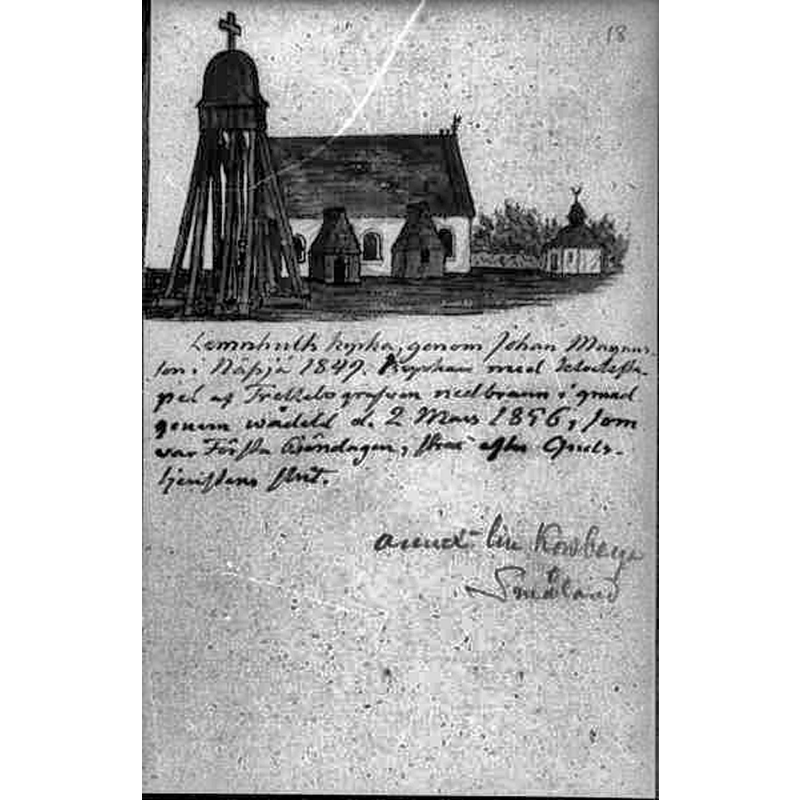 18
Lemnhults kyrka, genom Johan Magnus-
son i Näpja 1849. Kyrkan med klocksta-
pel af nedbrann i grund
genom wådeld d. 2 Mars 1856, som
war Första Böndagen, strax efter Guds-
tjenstens slut.
Småland